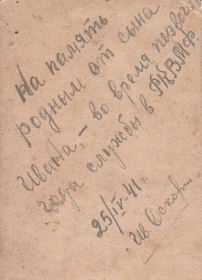 На память
родным от сына
Ивана, – во время первого
года службы в РКВМФ
25/IV-41 г.
Ив. Оскор